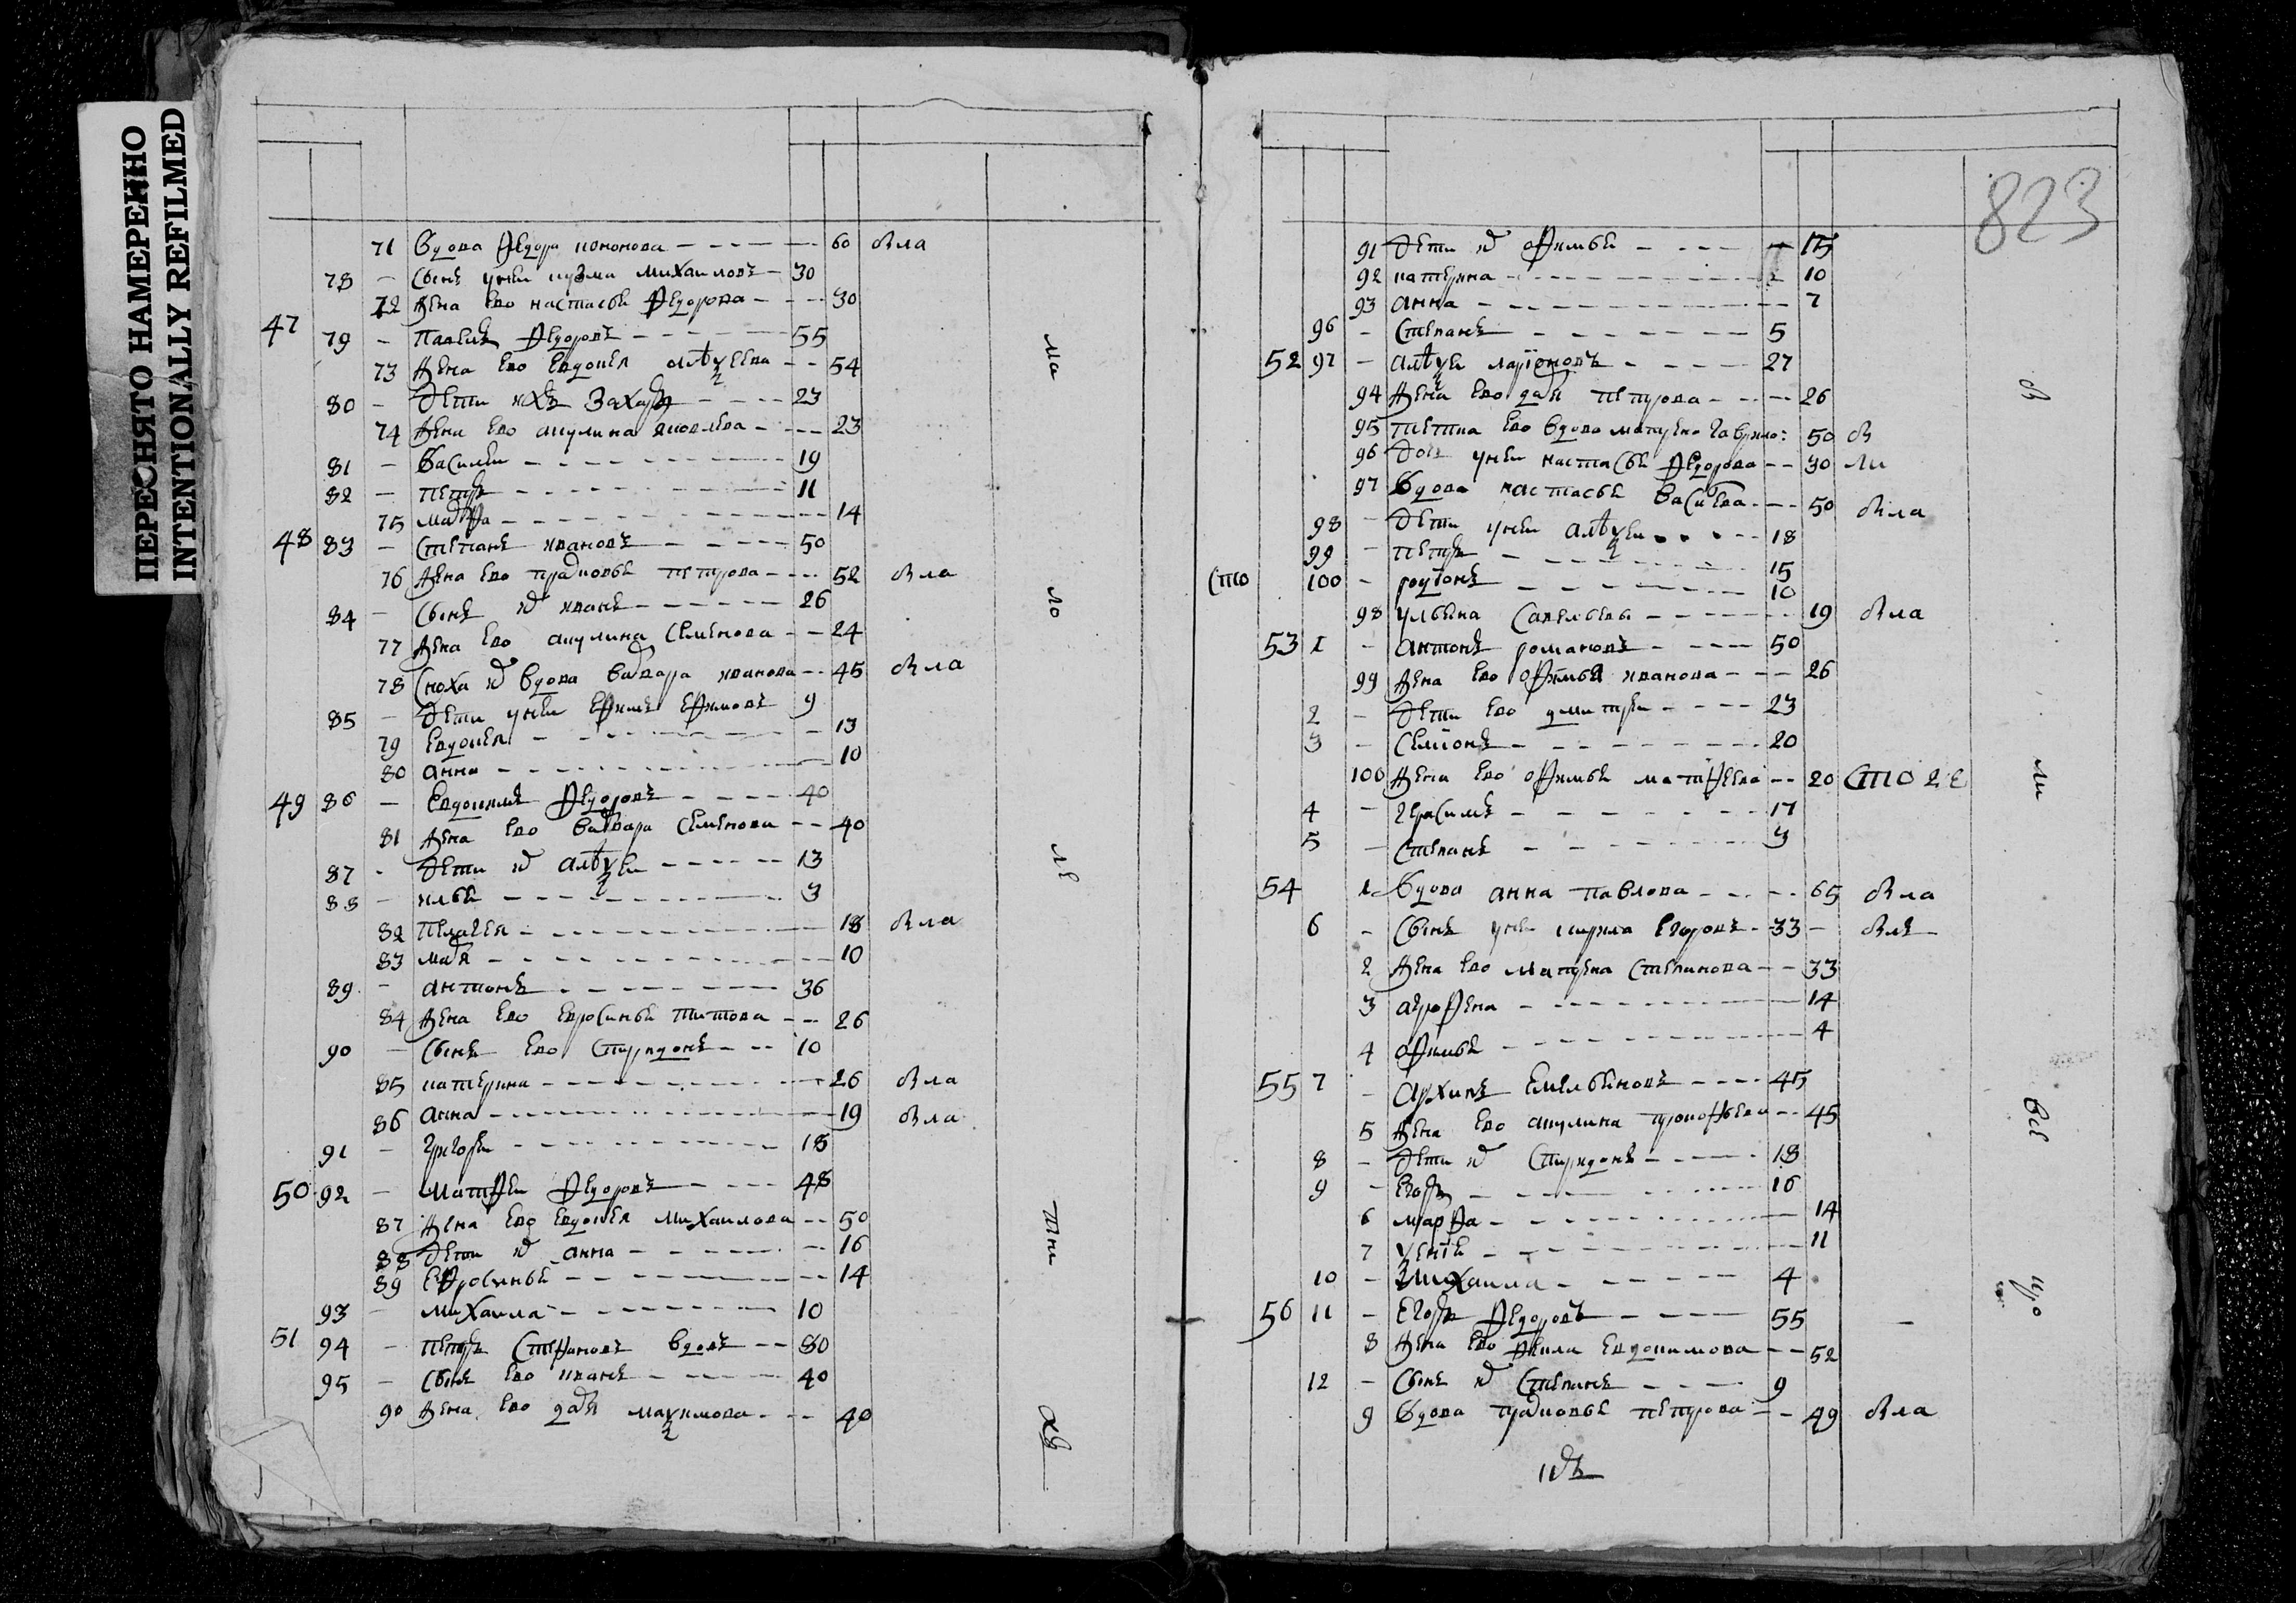 ПЕРЕСНЯТО НАМЕРЕННО
INTENTIONALLY REFILMED
823
71 вдова Федора кононова 60 вла
78 сынъ унеи кузма михаиловъ 30
72 жена ево настасья Федорова 30
47 79 Павелъ Федоровъ 55
73 жена ево Евдокея алѣѯеева 54
80 дети ихъ Захаръ 23
74 жена ево акулина яковлева 23
81 василеи 19
82 петръ 11
75 марфа 14
48 83 степанъ ивановъ 50
76 жена ево прасковья петрова 52 вла
84 сынъ их иванъ 26
77 жена ево акулина семенова 24
78 сноха их вдова варвара иванова 45 вла
85 дети унеи ефимъ ефимовъ 9
79 евдокея 13
80 анна 10
49 86 Евдокимъ Федоровъ 40
81 жена ево варвара семенова 40
87 дети их алѣѯеи 13
88 илья 3
82 пелагея 18 вла
83 маря 10
89 антонъ 36
84 жена ево евросинья титова 26
90 сынъ ево спиридонъ 10
85 катерина 26 вла
86 анна 19 вла
91 григореи 18
50 92 матфеи Федоровъ 48
87 жена ево евдокея михаилова 50
88 дети их анна 16
89 ефросинья 14
93 михаила 10
51 94 петръ стефановъ вдовъ 80
95 сынъ ево иванъ 40
90 жена ево даря маѯимова 40
ма
ло
лѣ
тни
хъ
91 дети их офимья 15
92 катерина 10
93 анна 7
96 степанъ 5
52 97 алѣѯеи ларионовъ 27
94 жена ево даря петрова 26
95 тетка ево вдова матрена гаврило: 50 в
96 доч унеи настасья Федорова 30 ли
97 вдова настасья васильева 50 вла
98 дети унеи алѣѯеи 18
99 петръ 15
сто 100 родионъ 10
98 ульяна савельева 19 вла
53 1 антонъ романовъ 50
99 жена ево офимья иванова 26
2 дети ево дмитреи 23
3 семионъ 20
100 жена ево офимья матфеева 20 сто 2 е
4 герасимъ 17
5 степанъ 3
54 1 вдова анна павлова 65 вла
6 сынъ унеи кирила егоровъ 33 влѣ
2 жена ево матрена степанова 33
3 агрофена 14
4 офимья 4
55 7 архипъ емельяновъ 45
5 жена ево акулина прокофьева 45
8 дети их спиридонъ 18
9 егоръ 16
6 марфа 14
7 ѯения 11
10 михаила 4
56 11 егоръ Федоровъ 55
8 жена ево Фекла евдокимова 52
12 сынъ их степанъ 9
9 вдова прасковья петрова 49 вла
в
ли
все